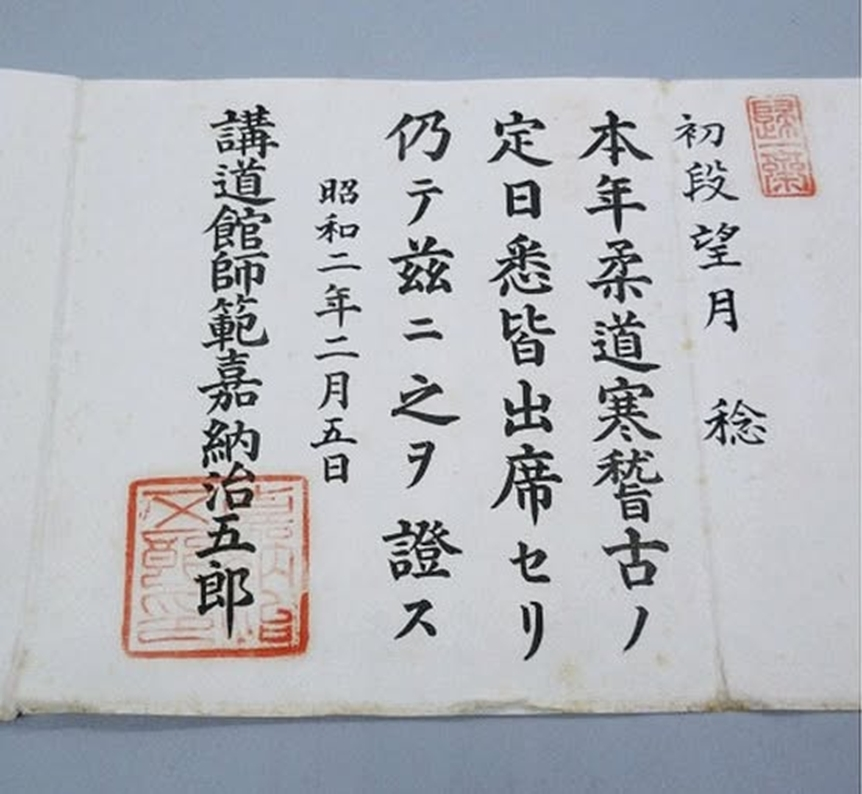 初段 望月 稔
本年柔道寒稽古ノ
定日悉皆出席セリ
仍テ茲ニ之ヲ證ス
昭和二年二月五日
講道館師範嘉納治五郎